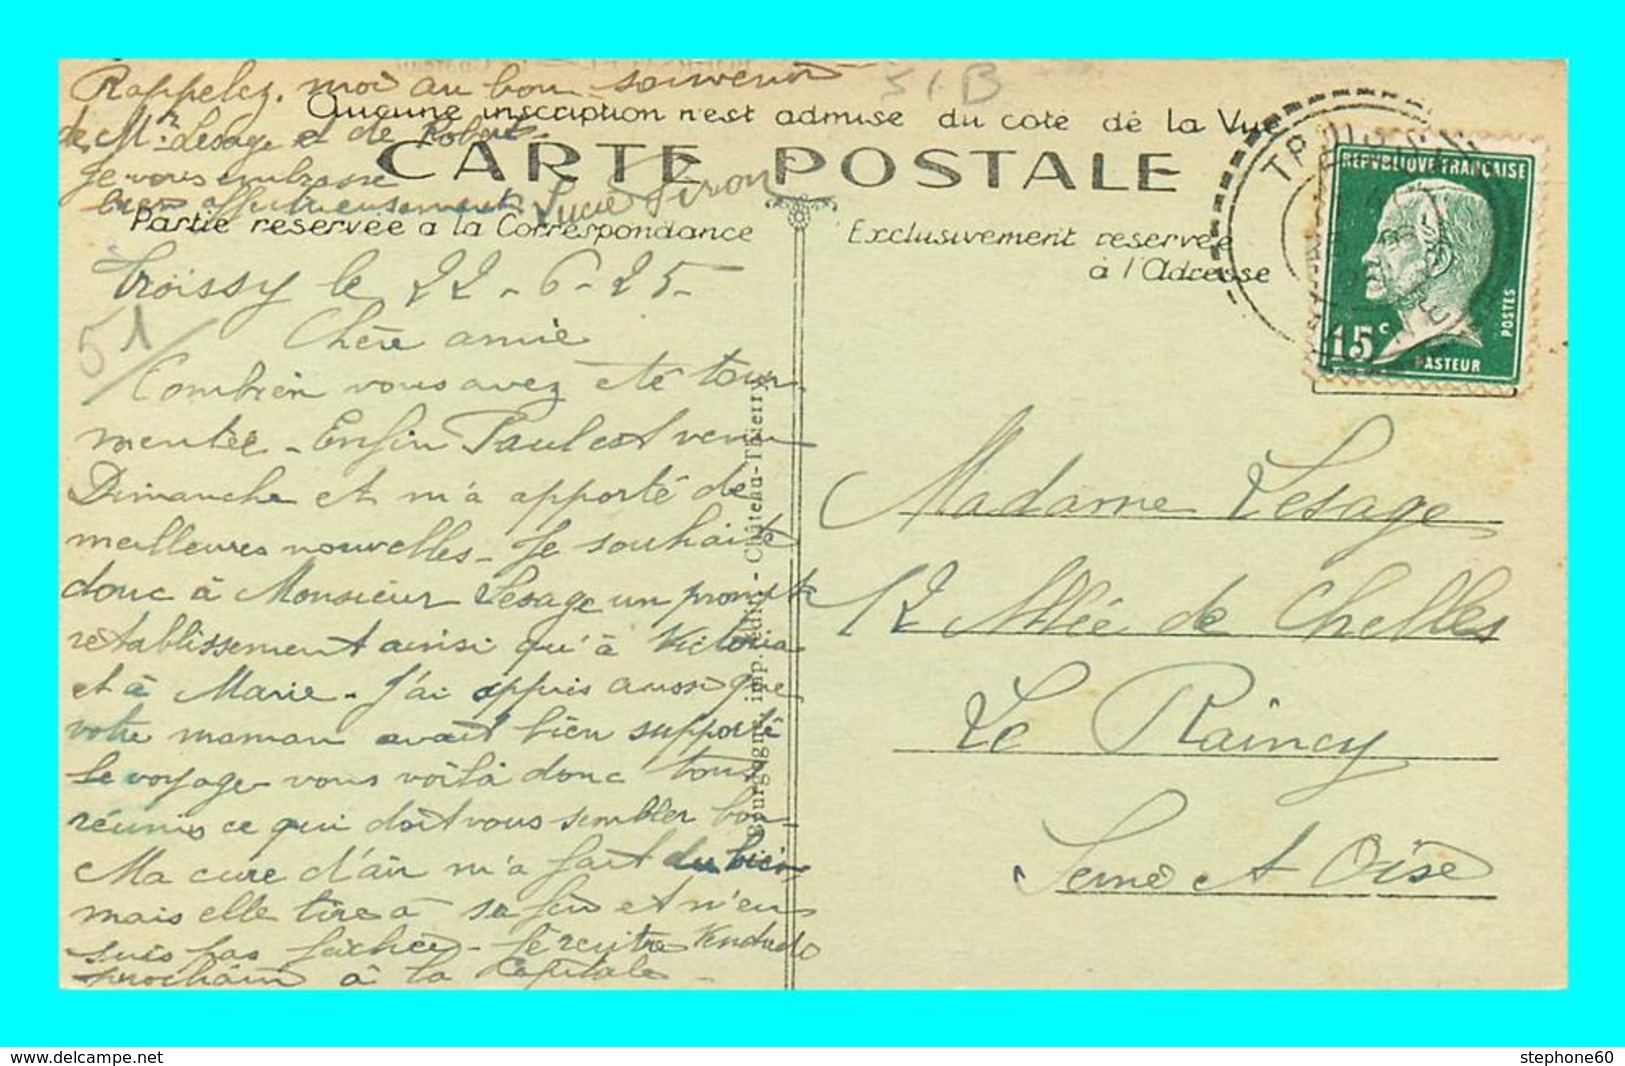 Rappelez-moi au bon souvenir
de Mr Lesage et de Robert.
Je vous embrasse
bien affectueusement
51B
Aucune inscription n'est admise du coté de la Vue
CARTE POSTALE
Partie reservée a la Correspondance
Exclusivement reservée
à l'Adresse
Troissy le 22-6-25-
51/
Chère amie
Combien vous avez été tour-
mentée - Enfin Paul est venu
Dimanche et m'a apporté de
meilleures nouvelles - Je souhaite
donc à Monsieur Lesage un prompt
rétablissement ainsi qu'à Victoria
et à Marie - J'ai appris aussi que
votre maman avait bien supporté
le voyage vous voilà donc tous
réunis ce qui doit vous sembler bon -
Ma cure d'air m'a fait du bien
mais elle tire à sa fin et n'en
suis pas fâchée - Je rentre Vendredi
prochain à la Capitale -
Lucie
Bourgogne, imp.-édit. - Château-Thierry
TROISSY
REPUBLIQUE FRANÇAISE
15c
POSTES
PASTEUR
Madame Lesage
12 Allée de Chelles
Le Raincy
Seine et Oise
www.delcampe.net
stephone60